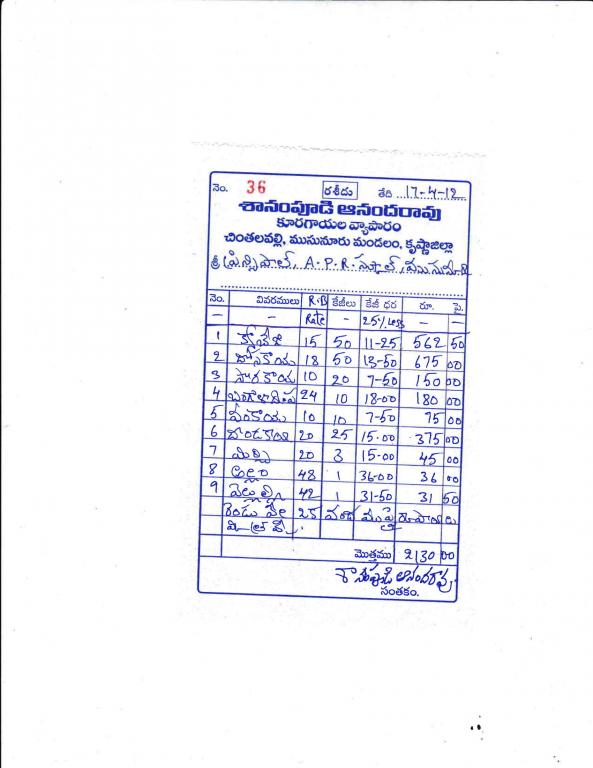 నెం. 36 రశీదు తేది 17-4-12
శానంపూడి ఆనందరావు
కూరగాయల వ్యాపారం
చింతలవల్లి, ముసునూరు మండలం, కృష్ణాజిల్లా
శ్రీ ప్రిన్సిపాల్, A.P.R. స్కూల్,
నెం. వివరములు R.B కేజీలు కేజీ ధర రూ. పై.
- - Rate - 25% Less - -
1 క్యాబేజి 15 50 11-25 562 50
2 దోసకాయ 18 50 13-50 675 00
3 సొరకాయ 10 20 7-50 150 00
4 బంగాళాదుంప 24 10 18-00 180 00
5 వంకాయ 10 10 7-50 75 00
6 దొండకాయ 20 25 15-00 375 00
7 మిర్చి 20 3 15-00 45 00
8 అల్లం 48 1 36-00 36 00
9 వెల్లుల్లి 42 1 31-50 31 50
రెండు వేల వంద ముప్పై రూపాయలు
మొత్తము 2130 00
శానంపూడి ఆనందరావు
సంతకం.